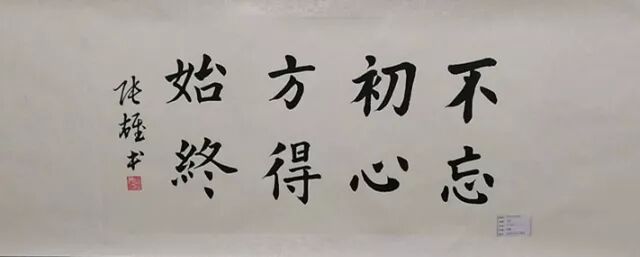 不忘
初心
方得
始終
张雄书